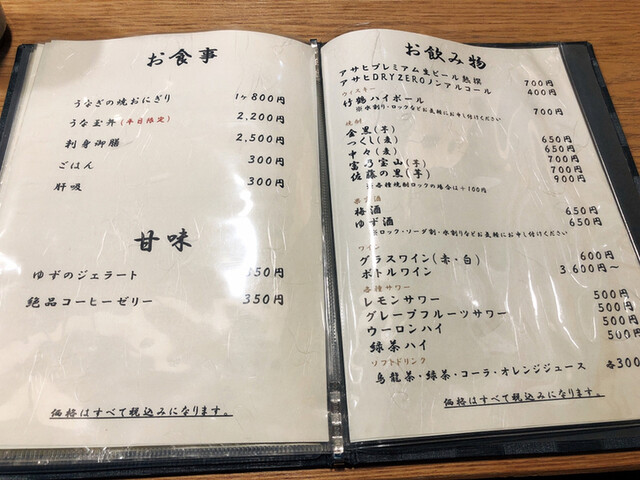 お食事
うなぎの焼おにぎり 1ヶ800円
うな玉丼(平日限定) 2,200円
刺身御膳 2,500円
ごはん 300円
肝吸 300円
甘味
ゆずのジェラート 350円
絶品コーヒーゼリー 350円
価格はすべて税込みになります。
お飲み物
アサヒプレミアム生ビール熟撰 700円
アサヒDRYZEROノンアルコール 400円
ウイスキー
竹鶴ハイボール 700円
※水割り・ロックなどお気軽にお申し付けください
焼酎
金黒(芋) 650円
つくし(麦) 650円
十々(麦) 700円
富乃宝山(芋) 700円
佐藤の黒(芋) 900円
※各種焼酎ロックの場合は+100円
果実酒
梅酒 650円
ゆず酒 650円
※ロック・ソーダ割・水割りなどお気軽にお申し付けください
ワイン
グラスワイン(赤・白) 600円
ボトルワイン 3,600円〜
各種サワー
レモンサワー 500円
グレープフルーツサワー 500円
ウーロンハイ 500円
緑茶ハイ 500円
ソフトドリンク
烏龍茶・緑茶・コーラ・オレンジジュース 各300
価格はすべて税込みになります。